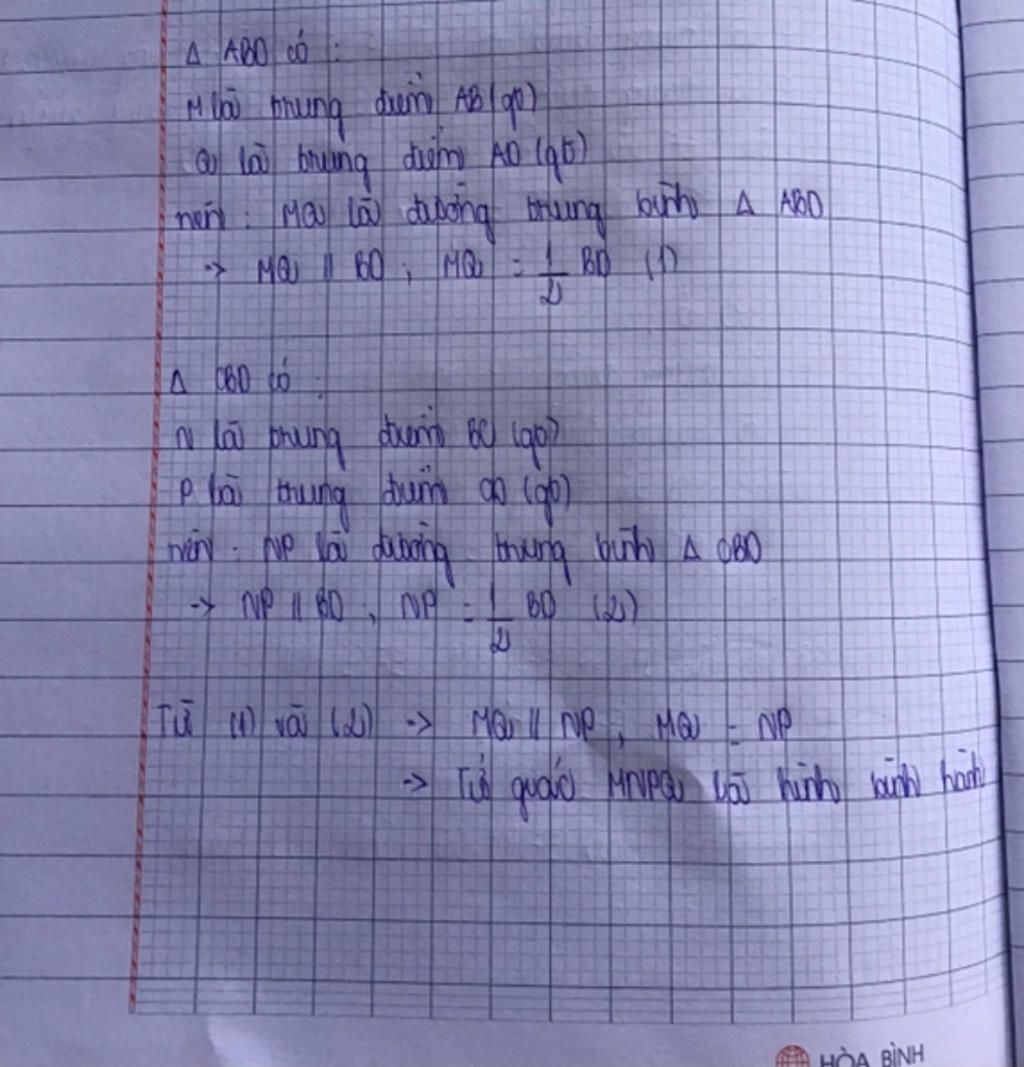 Δ ABD có :
M là trung điểm AB (gt)
Q là trung điểm AD (gt)
nên : MQ là đường trung bình Δ ABD
-> MQ // BD , MQ = 1/2 BD (1)
Δ CBD có :
N là trung điểm BC (gt)
P là trung điểm CD (gt)
nên : NP là đường trung bình Δ CBD
-> NP // BD , NP = 1/2 BD (2)
Từ (1) và (2) -> MQ // NP , MQ = NP
-> Tứ giác MNPQ là hình bình hành
HÒA BÌNH